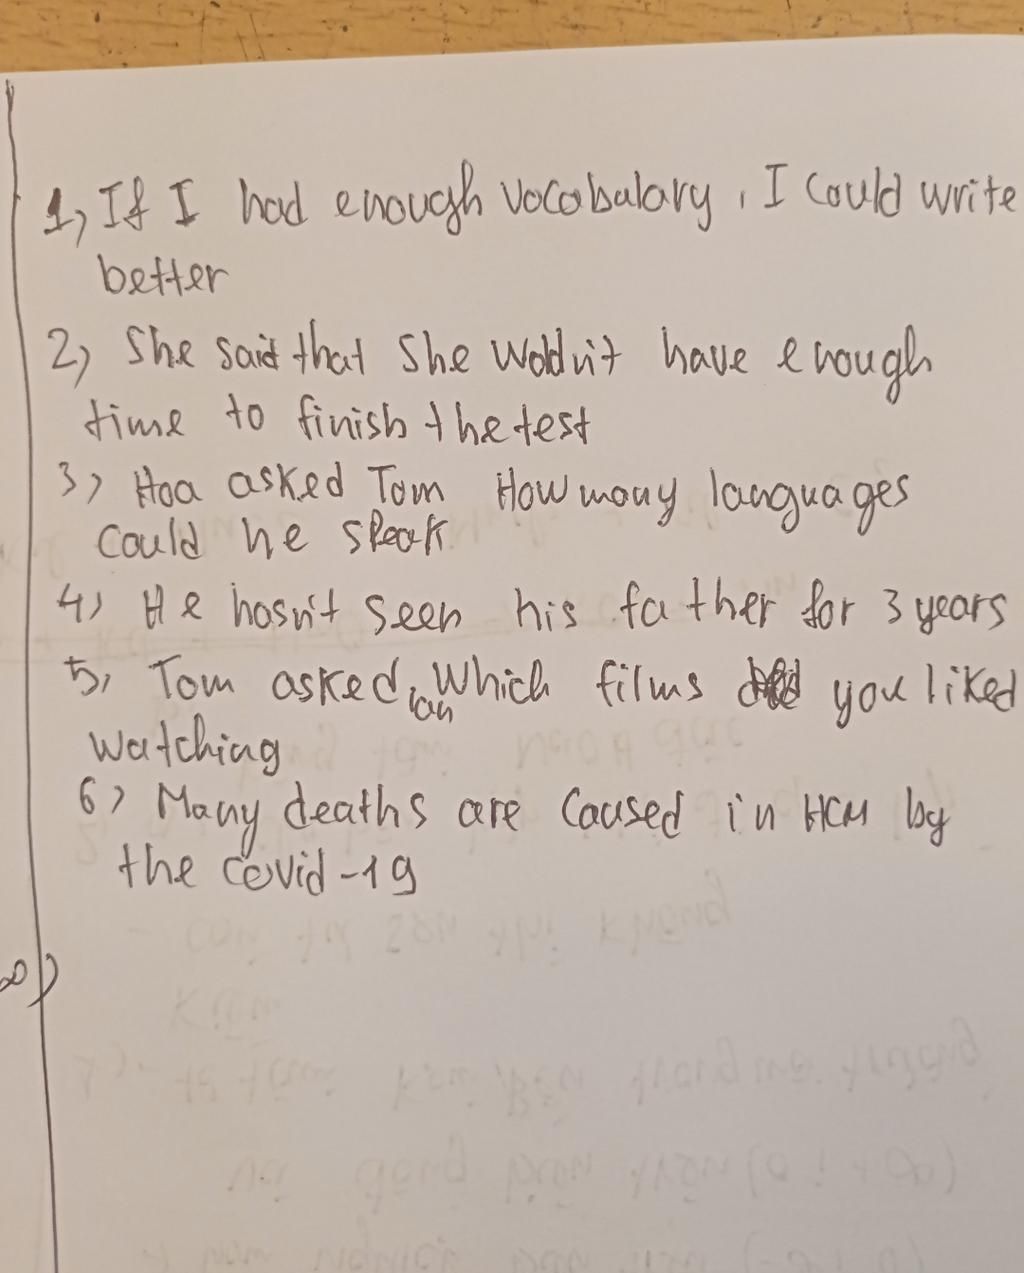 1, If I had enough vocobalary, I could write
better
2, She said that She woldn't have enough
time to finish the test
3, Hoa asked Tom How many languages
could he speak
4, He hasn't seen his father for 3 years
5, Tom asked Lan Which films you liked
watching
6, Many deaths are Caused in HCM by
the covid-19